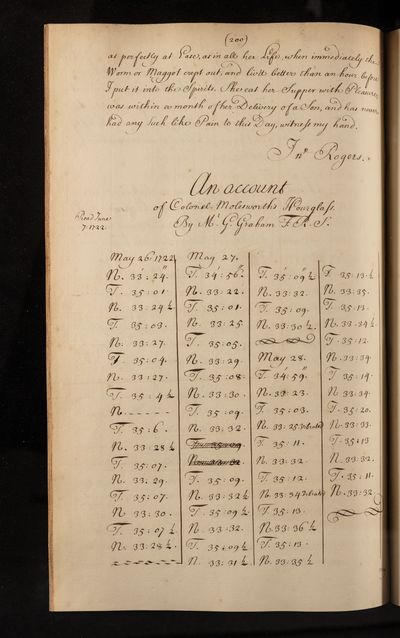 (200)
as perfectly at Ease, as in all her Life, when immediately the
Worm or Maggot crept out, and liv'd better than an hour before
I put it into the Spirits. She eat her Supper with Pleasure,
was within a month of her Delivery of a Son, and has never
had any such like Pain to this Day, witness my hand.
Jno Rogers.
An account
of Colonel Molesworth's Hourglass.
Read June
7. 1722.
By Mr. G. Graham F.R.S.
May 26. 1722
N. 33' : 24"
T. 35 : 01
N. 33 : 24 ½
T. 35 : 03.
N. 33 : 27.
T. 35 : 04.
N. 33 : 27.
T. 35 : 4 ½
N. - - - - -
T. 35 : 6.
N. 33 : 28 ½
T. 35 : 07.
N. 33. 29.
T. 35 : 07.
N. 33 : 30.
T. 35 : 07 ½
N. 33 : 28 ½.
May 27.
T. 34' : 56"
N. 33 : 22.
T. 35 : 01.
N. 33 : 25
T. 35 : 05.
N. 33 : 29.
T. 35 : 08.
N. 33 : 30.
T. 35 : 09.
N. 33 : 32.
T. 35 : 09.
N. 33 : 32 ½
T. 35 : 09 ½
N. 33 : 32.
T. 35 : 09 ½
N. 33 : 31 ½
T. 35' : 09 ½
N. 33 : 32.
T. 35 : 09.
N. 33 : 30 ½.
May 28.
T. 34' : 59"
N. 33 : 23.
T. 35 : 03.
N. 33 : 25
T. 35 : 11.
N. 33 : 32.
T. 35 : 12.
N. 33 : 34
T. 35 : 13.
N. 33 : 36 ½
T. 35 : 13.
N. 33 : 35 ½
T. 35 : 13 ½
N. 33 : 35.
T. 35 : 13.
N. 33 : 34 ½
T. 35 : 12.
N. 33 : 34
T. 35 : 14.
N. 33 : 34.
T. 35 : 20.
N. 33 : 33.
T. 35 : 13
N. 33 : 32.
T. 35 : 11.
N. 33 : 32